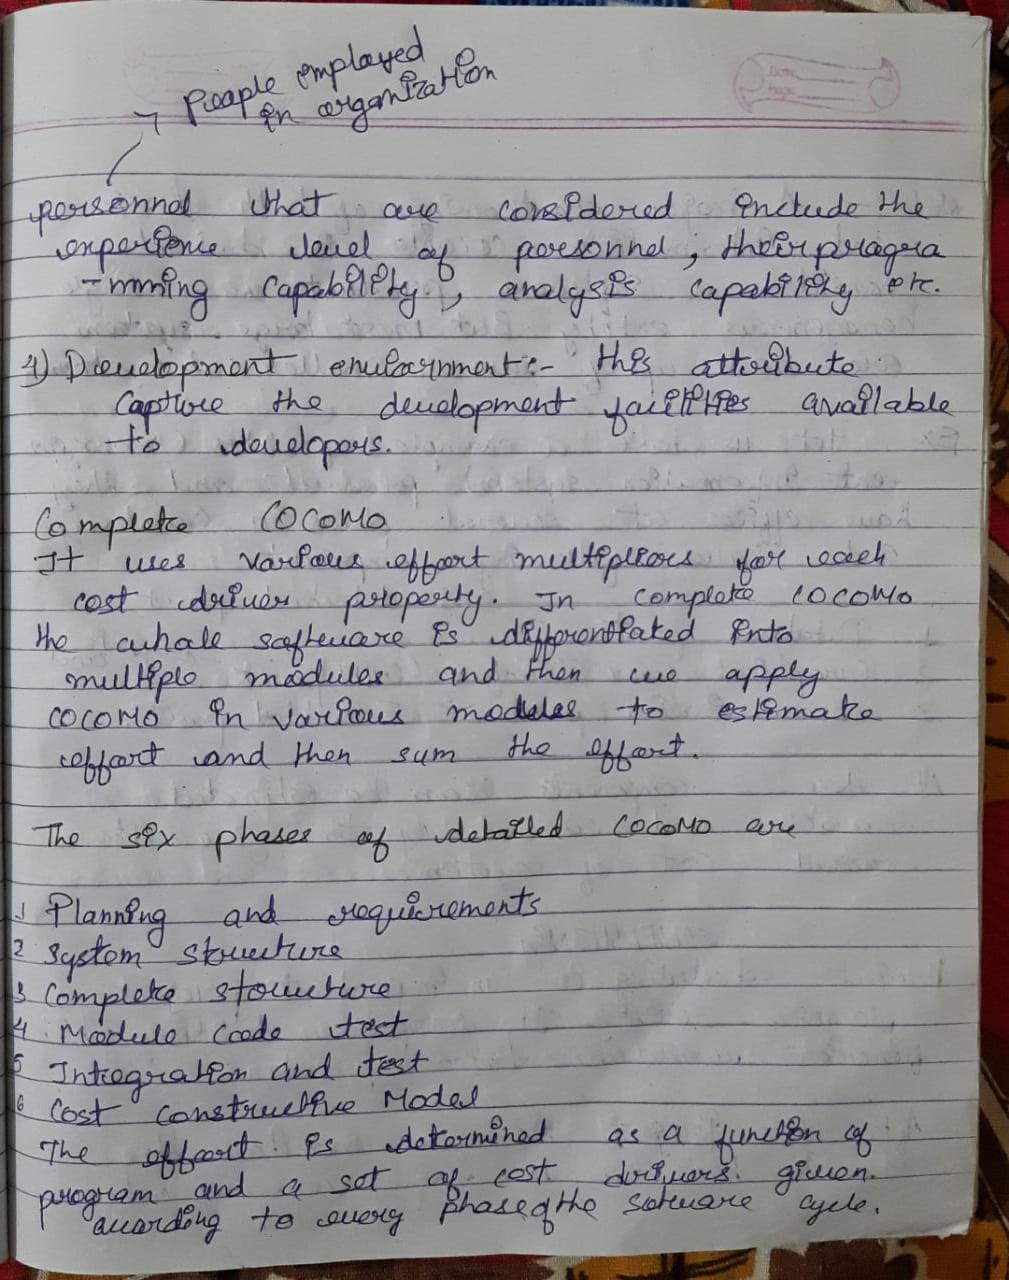 People employed
in organization
personnel that are considered include the
experience level of personnel, their progra
-mming capability, analysis capability etc.
4) Development enviornment:- this attribute
Capture the development facilities available
to developers.
Complete COCOMO
It uses various effort multipliers for each
cost driver property. In complete COCOMO
the whole software is differentiated into
multiple modules and then we apply
COCOMO in various modules to estimate
effort and then sum the effort.
The six phases of detailed COCOMO are
1 Planning and requirements
2 System structure
3 Complete structure
4 Module code test
5 Integration and test
6 Cost constructive Model
The effort is determined as a function of
program and a set of cost drivers given
according to every phase of the software cycle.